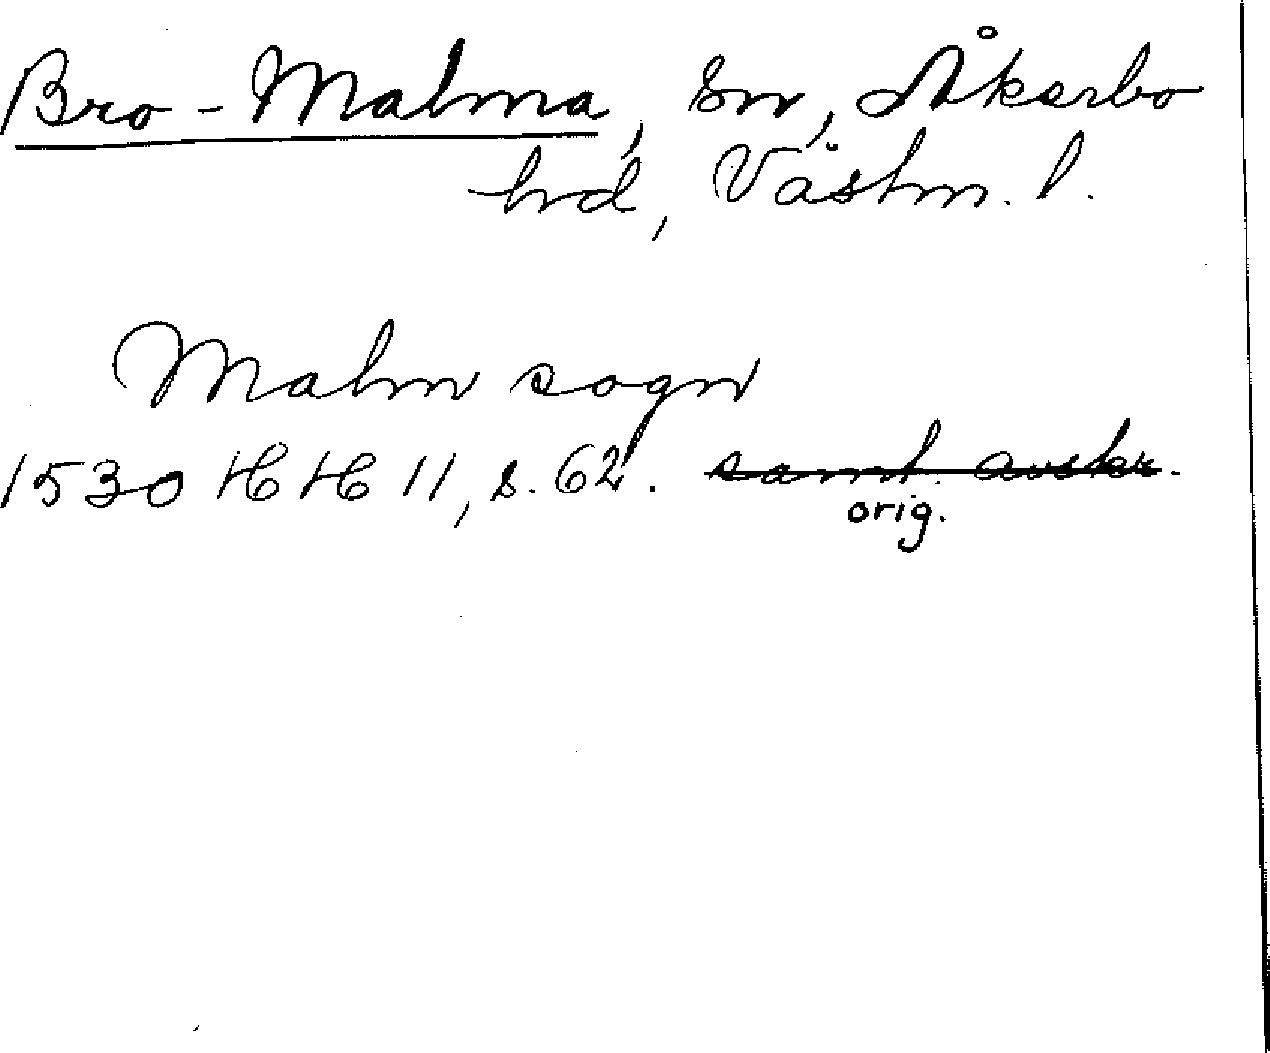 Bro-Malma, sn, Åkerbo
hd, Västm. l.
Malm sogn
1530 HH 11, s. 62. samt. avskr.
orig.